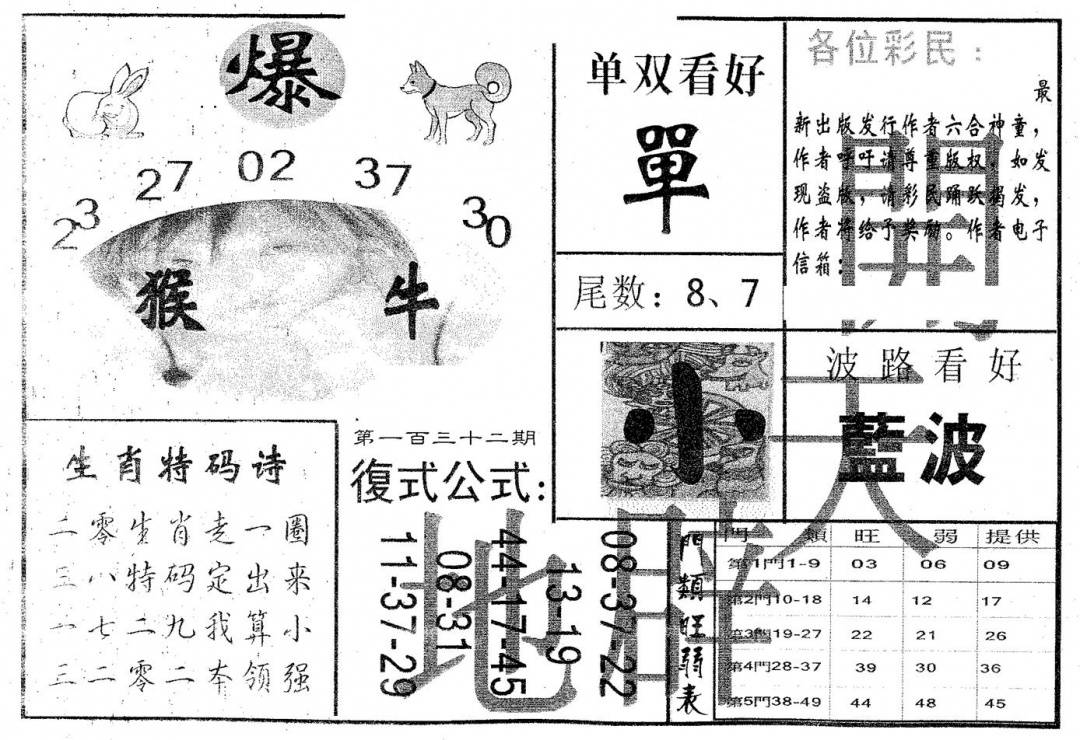 爆
23
27
02
37
30
猴
牛
单双看好
單
尾数：8、7
各位彩民：
最
新出版发行作者六合神童，
作者呼吁请尊重版权，如发
现盗版，请彩民踊跃揭发，
作者将给予奖励。作者电子
信箱：
小
波路看好
藍波
開
天
地
生肖特码诗
二零生肖走一圈
三八特码定出来
一七二九我算小
三二零二本领强
第一百三十二期
復式公式：
11-37-29
08-31
44-17-45
13-19
08-37-22
門類旺弱表
門類 旺 弱 提供
第1門1-9 03 06 09
第2門10-18 14 12 17
第3門19-27 22 21 26
第4門28-37 39 30 36
第5門38-49 44 48 45